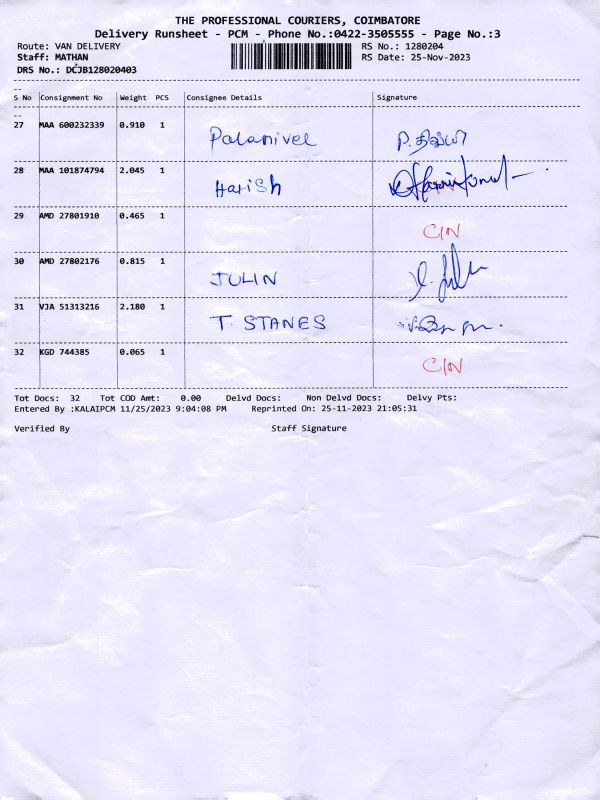 THE PROFESSIONAL COURIERS, COIMBATORE
Delivery Runsheet - PCM - Phone No.:0422-3505555 - Page No.:3
Route: VAN DELIVERY RS No.: 1280204
Staff: MATHAN RS Date: 25-Nov-2023
DRS No.: DCJB128020403
S No Consignment No Weight PCS Consignee Details Signature
27 MAA 600232339 0.910 1 Palanivel
28 MAA 101874794 2.045 1 Harish
29 AMD 27801910 0.465 1 C/N
30 AMD 27802176 0.815 1 JULIN
31 VJA 51313216 2.180 1 T. STANES
32 KGD 744385 0.065 1 C/N
Tot Docs: 32 Tot COD Amt: 0.00 Delvd Docs: Non Delvd Docs: Delvy Pts:
Entered By :KALAIPCM 11/25/2023 9:04:08 PM Reprinted On: 25-11-2023 21:05:31
Verified By Staff Signature